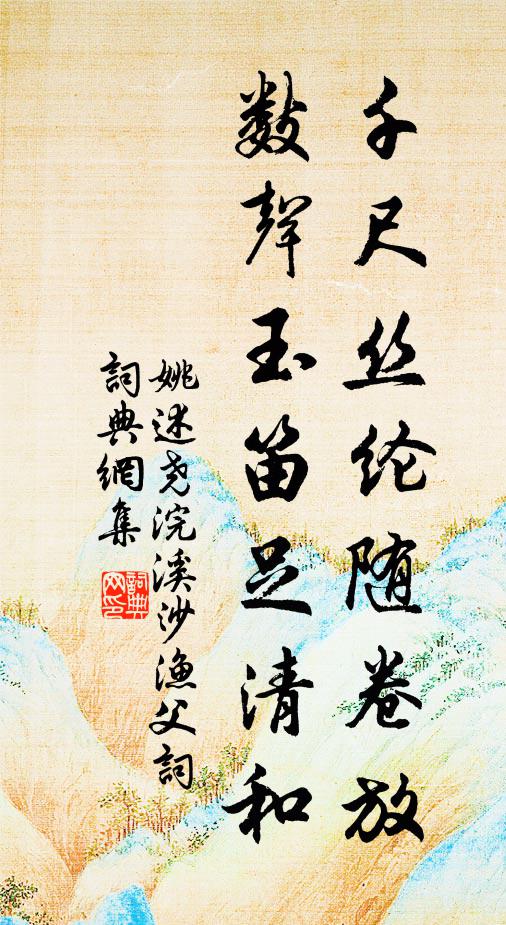 千尺丝纶随卷放
数聲玉笛足清和
姚述尧浣溪沙渔父詞
詞典網集
詞典网印